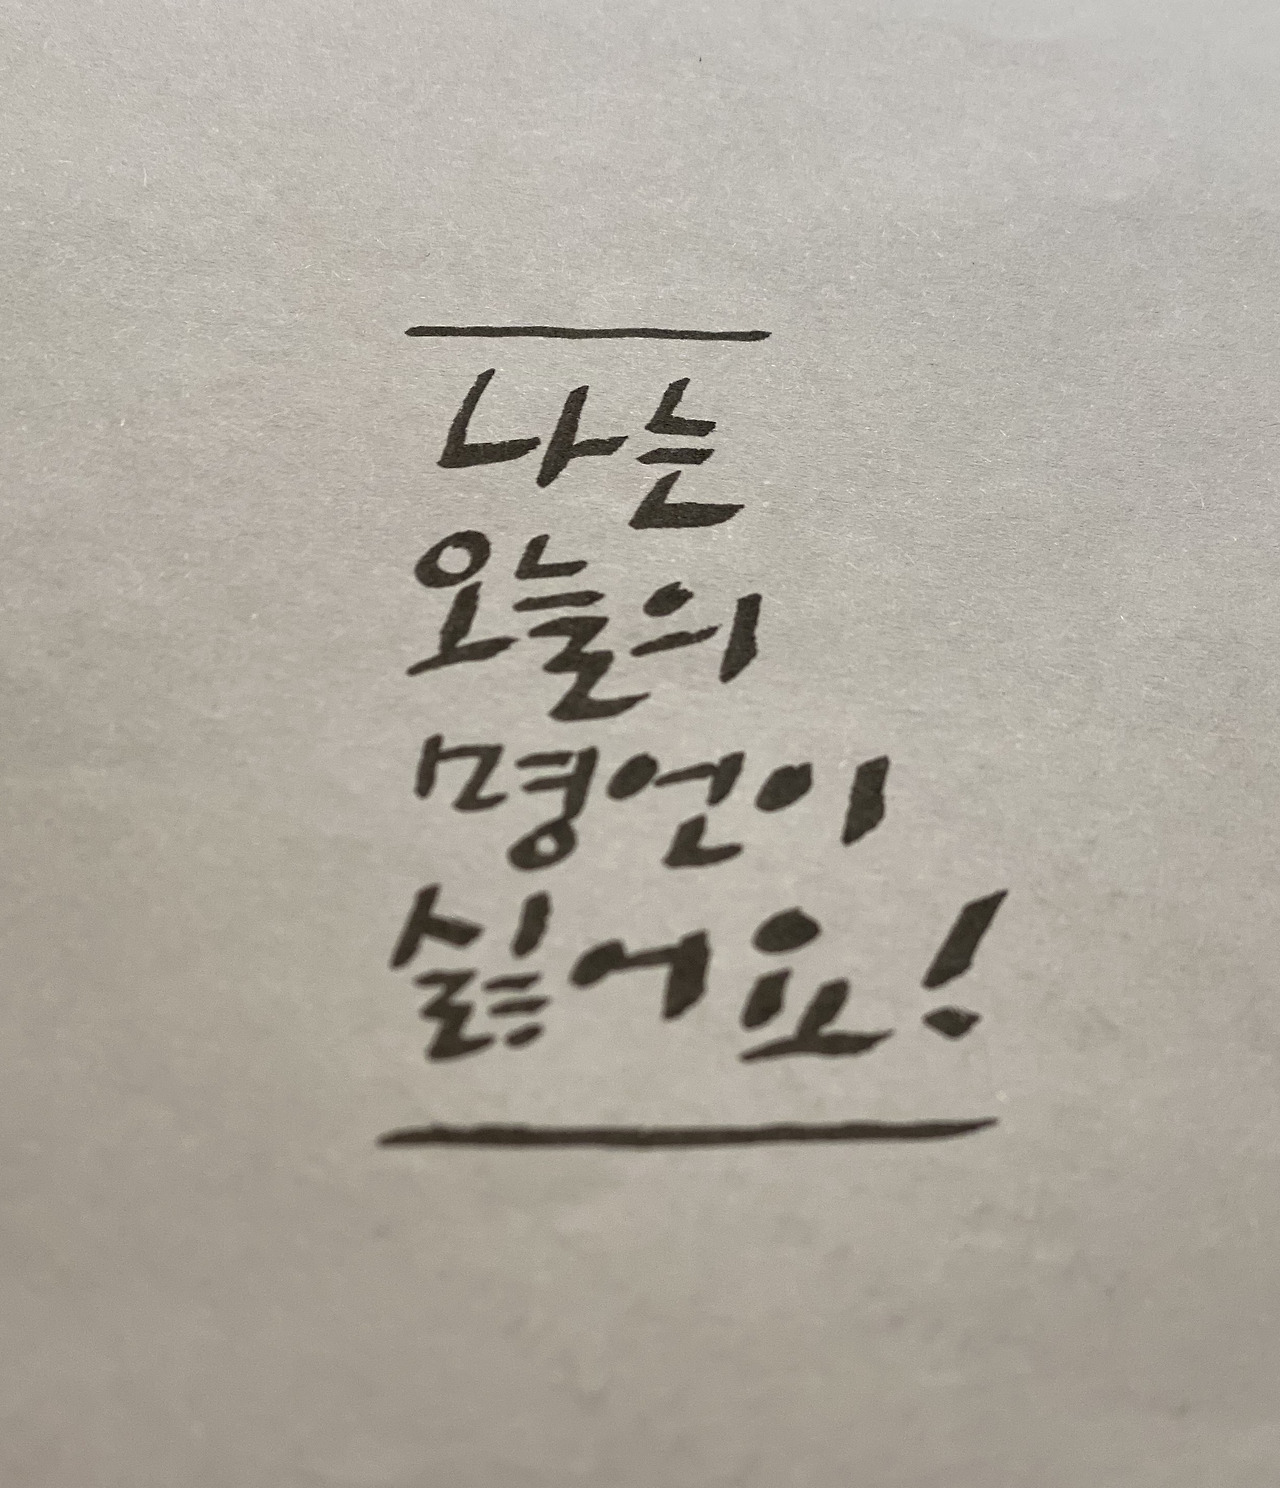 나는
오늘의
명언이
싫어요!